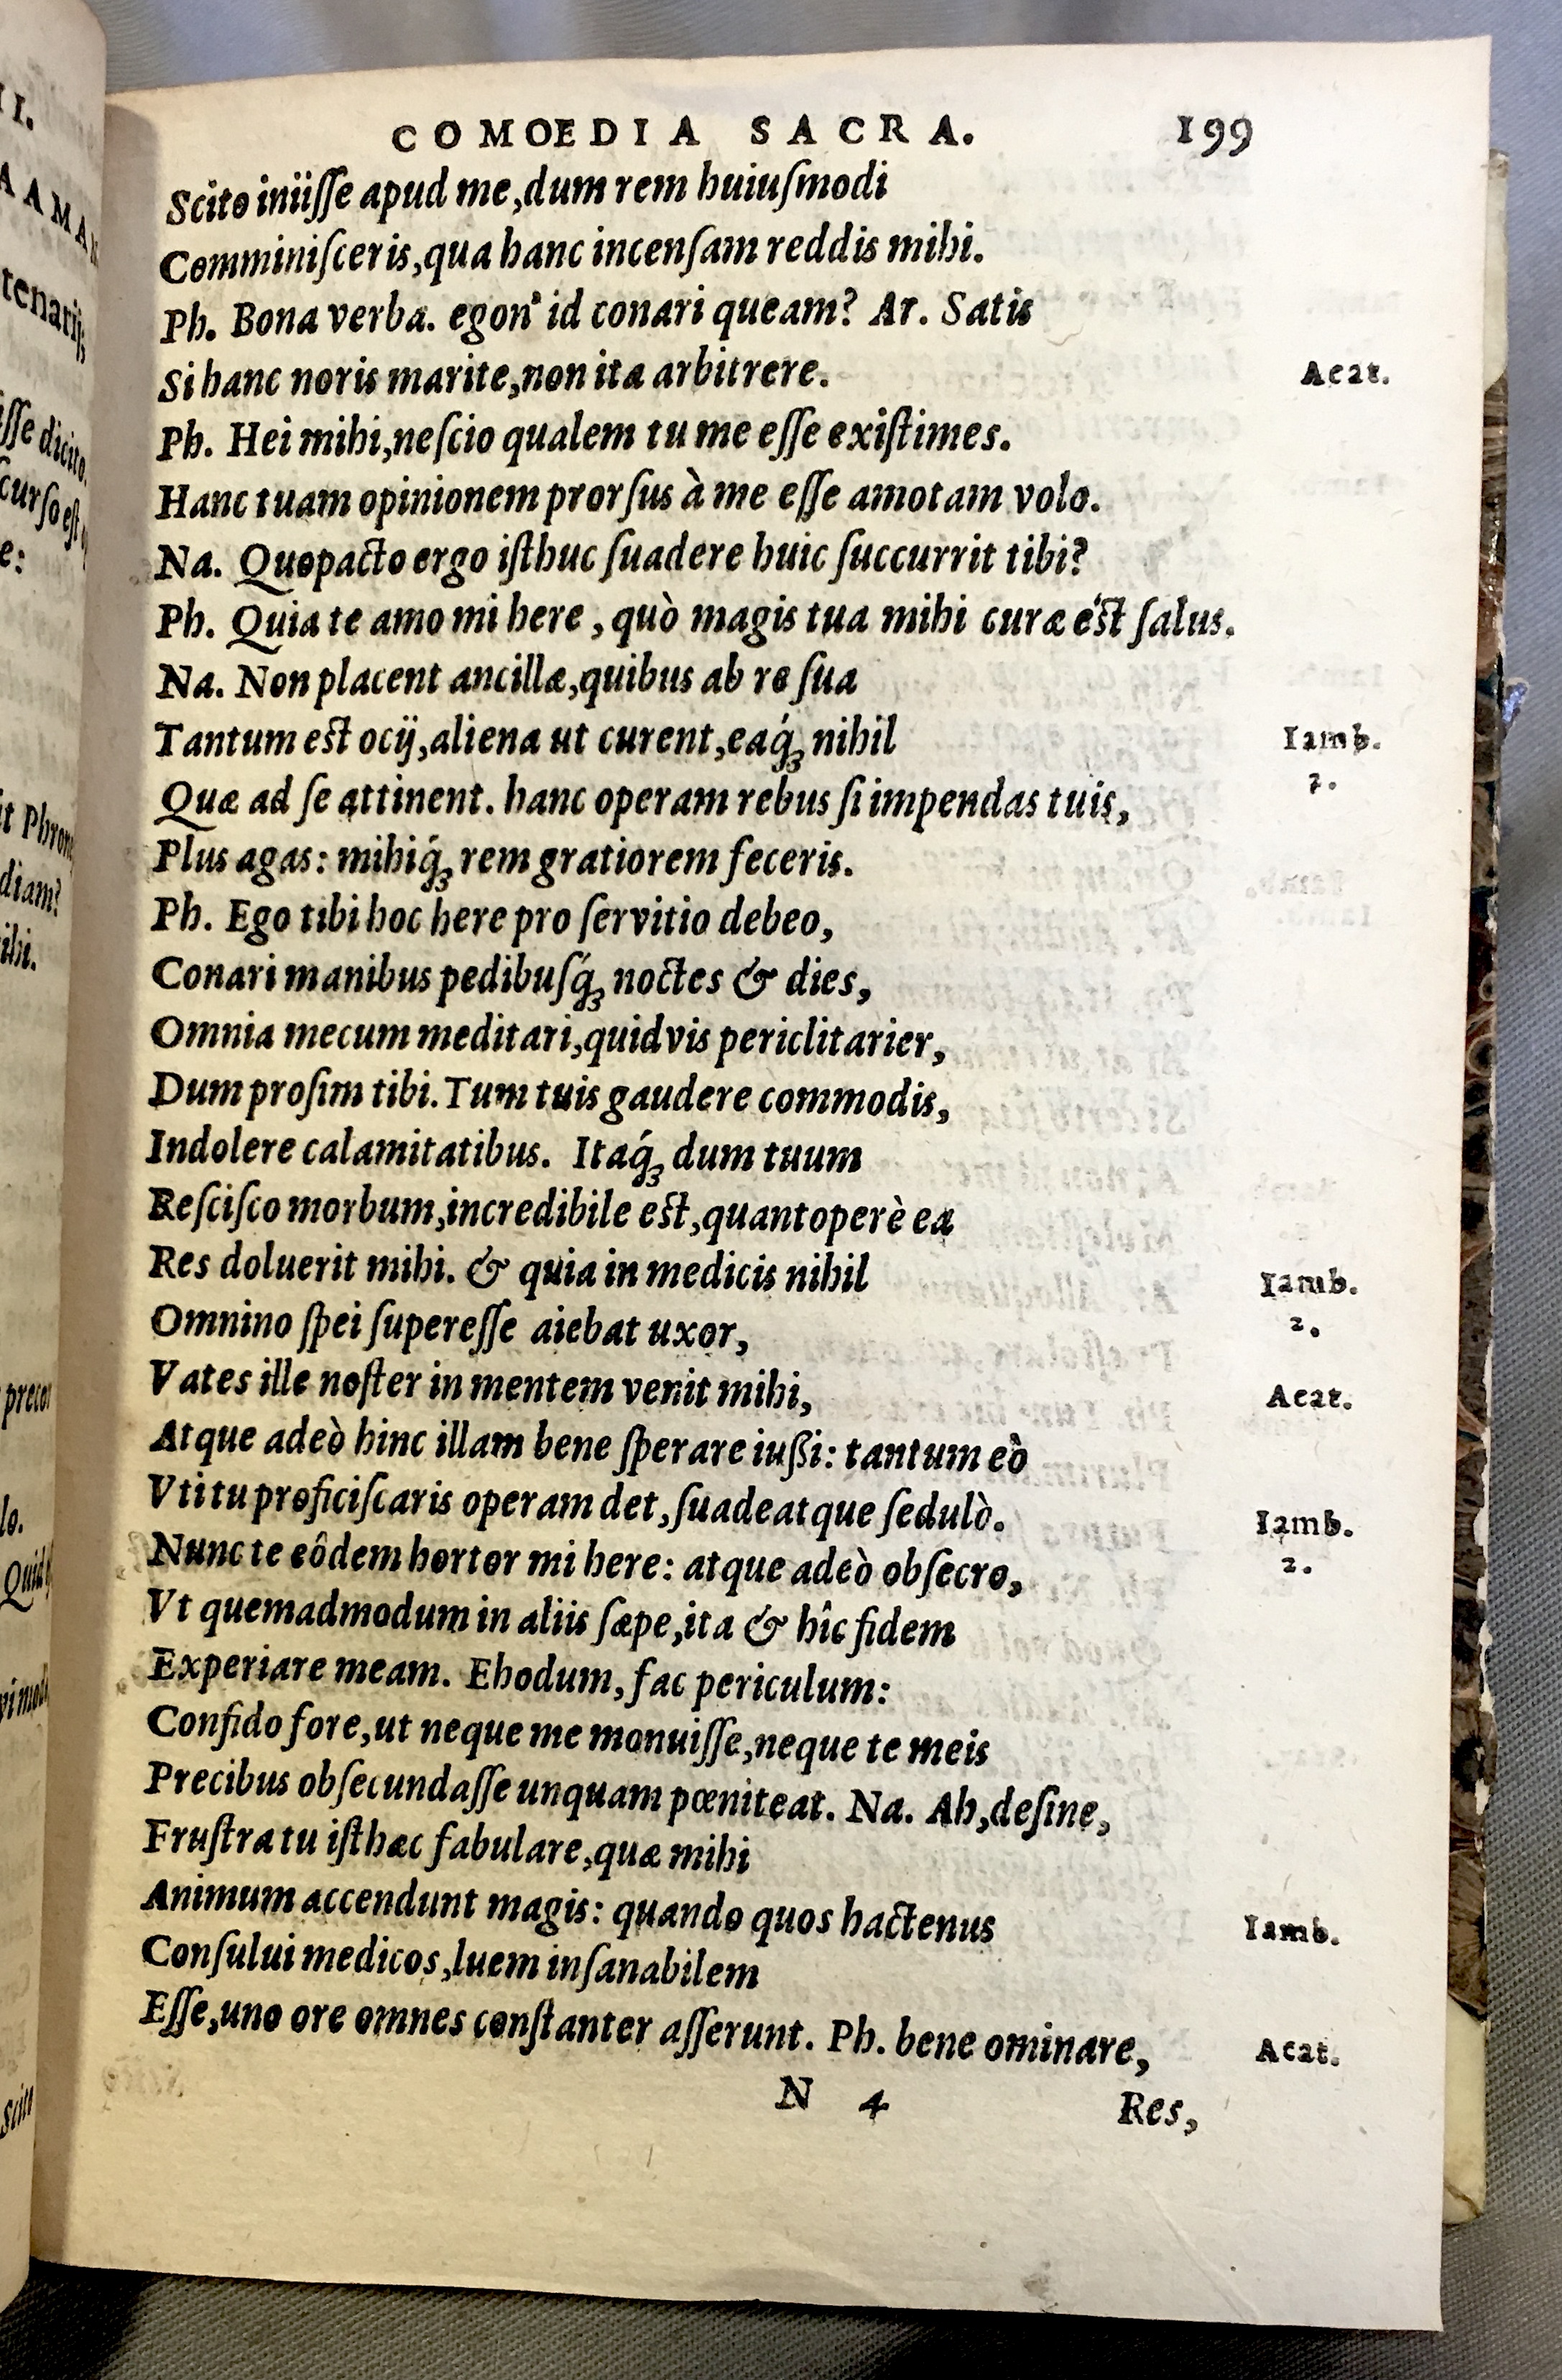 COMOEDIA SACRA. 199
Scito iniiſſe apud me, dum rem huiuſmodi
Comminiſceris, qua hanc incenſam reddis mihi.
Ph. Bona verba. egon' id conari queam? Ar. Satis
Si hanc noris marite, non ita arbitrere. Acat.
Ph. Hei mihi, neſcio qualem tu me eſſe exiſtimes.
Hanc tuam opinionem prorſus à me eſſe amotam volo.
Na. Quopacto ergo iſthuc ſuadere huic ſuccurrit tibi?
Ph. Quia te amo mi here, quò magis tua mihi curæ e'st ſalus.
Na. Non placent ancillæ, quibus ab re ſua
Tantum est ocij, aliena ut curent, eaq́ꝫ nihil Iamb.
2.
Quæ ad ſe attinent. hanc operam rebus ſi impendas tuis,
Plus agas: mihiq́ꝫ rem gratiorem feceris.
Ph. Ego tibi hoc here pro ſervitio debeo,
Conari manibus pedibuſq́ꝫ noctes & dies,
Omnia mecum meditari, quidvis periclitarier,
Dum proſim tibi. Tum tuis gaudere commodis,
Indolere calamitatibus. Itaq́ꝫ dum tuum
Reſciſco morbum, incredibile est, quantoperè ea
Res doluerit mihi. & quia in medicis nihil Iamb.
2.
Omnino ſpei ſupereſſe aiebat uxor,
Vates ille noſter in mentem venit mihi, Acat.
Atque adeò hinc illam bene ſperare iußi: tantum eò
Vti tu proficiſcaris operam det, ſuadeatque ſedulò. Iamb.
2.
Nunc te eôdem hortor mi here: atque adeò obſecro,
Vt quemadmodum in aliis ſæpe, ita & hîc fidem
Experiare meam. Ehodum, fac periculum:
Confido fore, ut neque me monuiſſe, neque te meis
Precibus obſecundaſſe unquam pœniteat. Na. Ah, deſine,
Fruſtra tu iſthæc fabulare, quæ mihi
Animum accendunt magis: quando quos hactenus Iamb.
Conſului medicos, luem inſanabilem
Eſſe, uno ore omnes conſtanter aſſerunt. Ph. bene ominare, Acat.
N 4 Res,